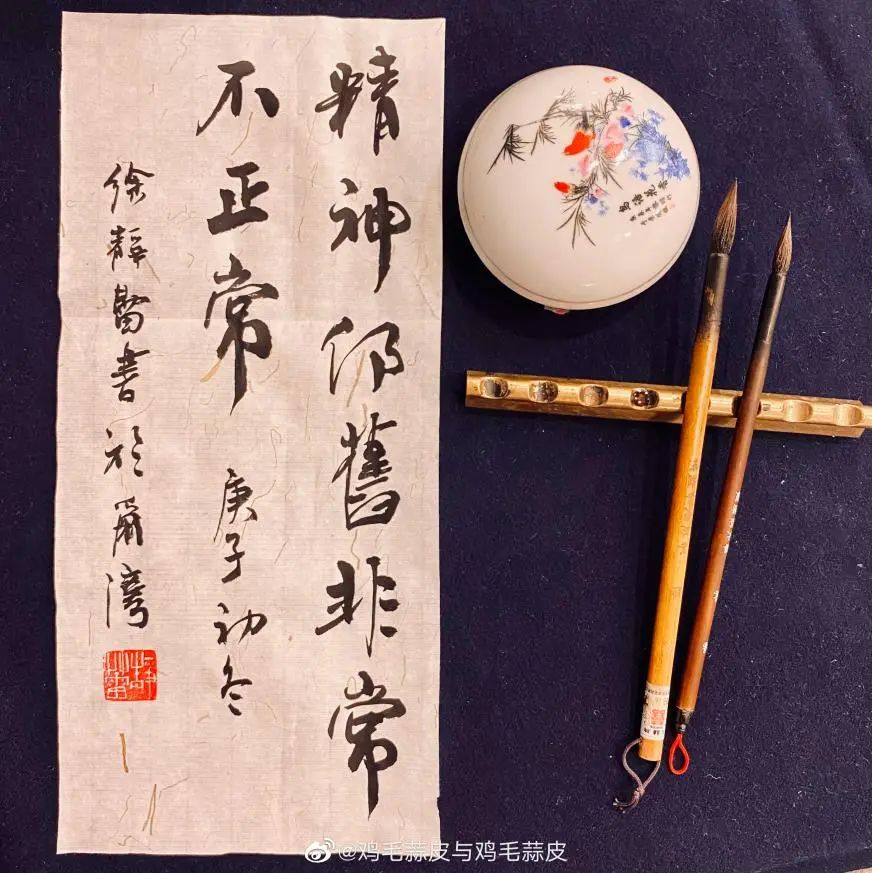 精神仍舊非常
不正常 庚子初冬
徐靜蕾書於
@鸡毛蒜皮与鸡毛蒜皮